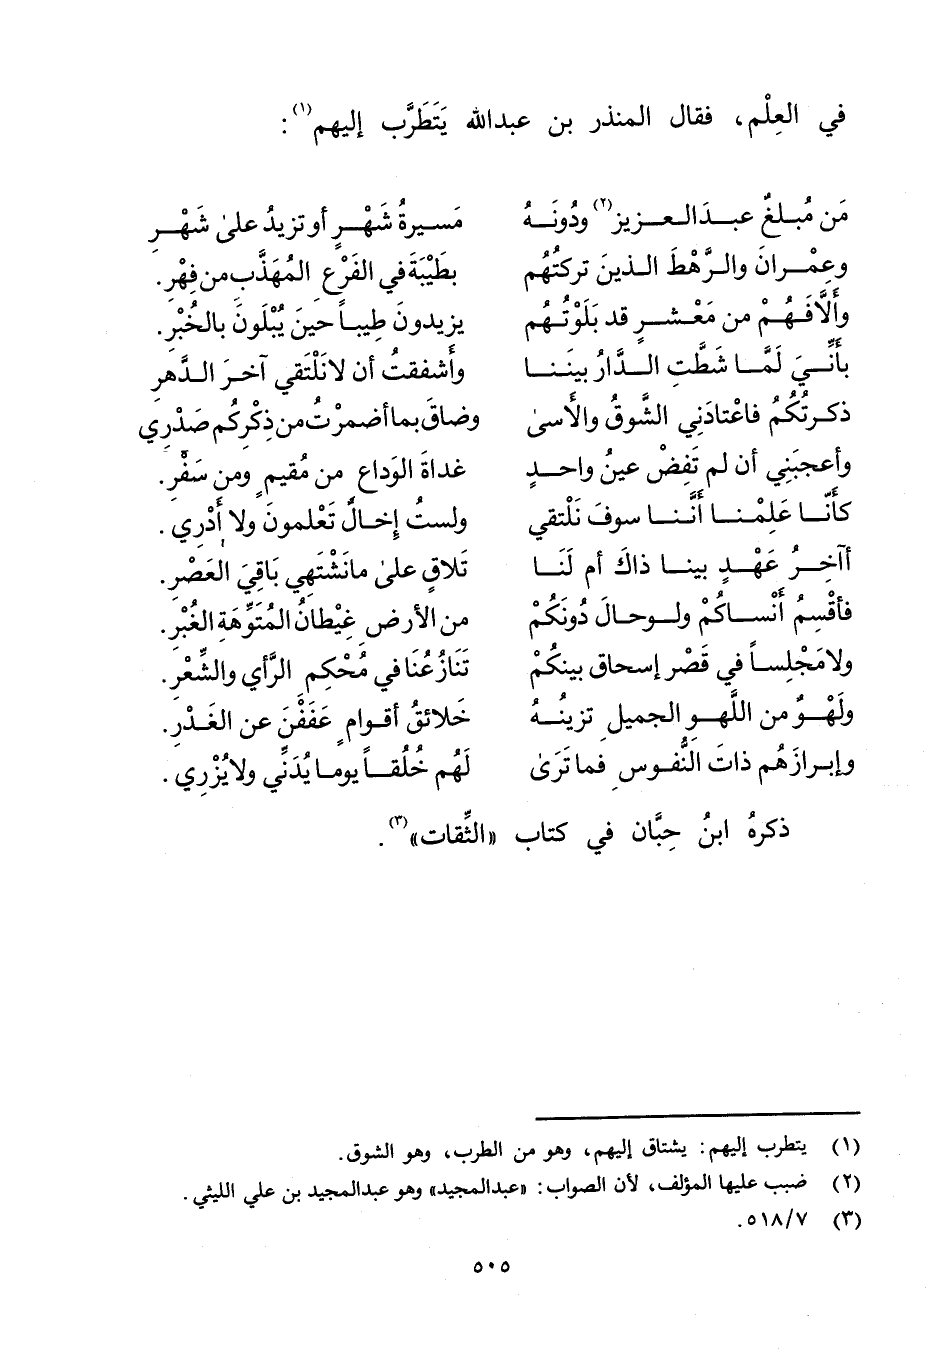 في العِلْم، فقال المنذر بن عبدالله يَتَطَرَّب إليهم(١):
مَن مُبلغٌ عبدَالعزيز(٢) ودُونَهُ مَسيرةُ شَهْرٍ أو تزيدُ علىٰ شَهْرِ
وعِمْرانَ والرَّهْطَ الذينَ تركتُهُم بطَيْبَةَ في الفَرْعِ المُهَذَّبِ من فِهْرِ.
وأُلَّافَهُمْ من مَعْشرٍ قد بَلَوْتُهُم يزيدونَ طِيباً حينَ يُبْلَونَ بالخُبْرِ.
بأَنِّيَ لَمَّا شَطَّتِ الدَّارُ بينَنا وأَشفقتُ أن لا نَلْتَقي آخرَ الدَّهرِ
ذكرتُكُمُ فاعْتادَنِي الشَّوقُ والأَسىٰ وضاقَ بما أضمرْتُ من ذِكْرِكُم صَدْرِي
وأعجبَنِي أن لم تَفِضْ عينُ واحدٍ غداةَ الوَداعِ من مُقيمٍ ومن سَفْرِ.
كأَنَّا عَلِمْنا أنَّنا سوفَ نَلْتقي ولستُ إخالُ تَعْلمونَ ولا أَدْرِي.
أآخِرُ عَهْدٍ بينا ذاكَ أم لَنَا تَلاقٍ علىٰ ما نَشْتَهي بَاقِيَ العَصْرِ.
فأقْسِمُ أَنْساكُمْ ولو حالَ دُونَكُمْ من الأرضِ غِيْطانُ المُتَوَّهَةِ الغُبْرِ.
ولا مَجْلِساً في قَصْر إسحاق بينكُمْ تَنَازُعُنَا في مُحْكمِ الرَّأي والشِّعْرِ.
ولَهْوٌ من اللَّهو الجميلِ تزينُهُ خَلائقُ أقوامٍ عَفَفْنَ عن الغَدْرِ.
وإبرازَهُم ذاتَ النُّفوسِ فما تَرَىٰ لَهُم خُلُقاً يوما يُدَنِّي ولا يُزْرِي.
ذكرهُ ابنُ حِبَّان في كتاب «الثِّقات»(٣).
(١) يتطرب إليهم: يشتاق إليهم، وهو من الطرب، وهو الشوق.
(٢) ضبب عليها المؤلف، لأن الصواب: «عبدالمجيد» وهو عبدالمجيد بن علي الليثي.
(٣) ٥١٨/٧.
٥٠٥